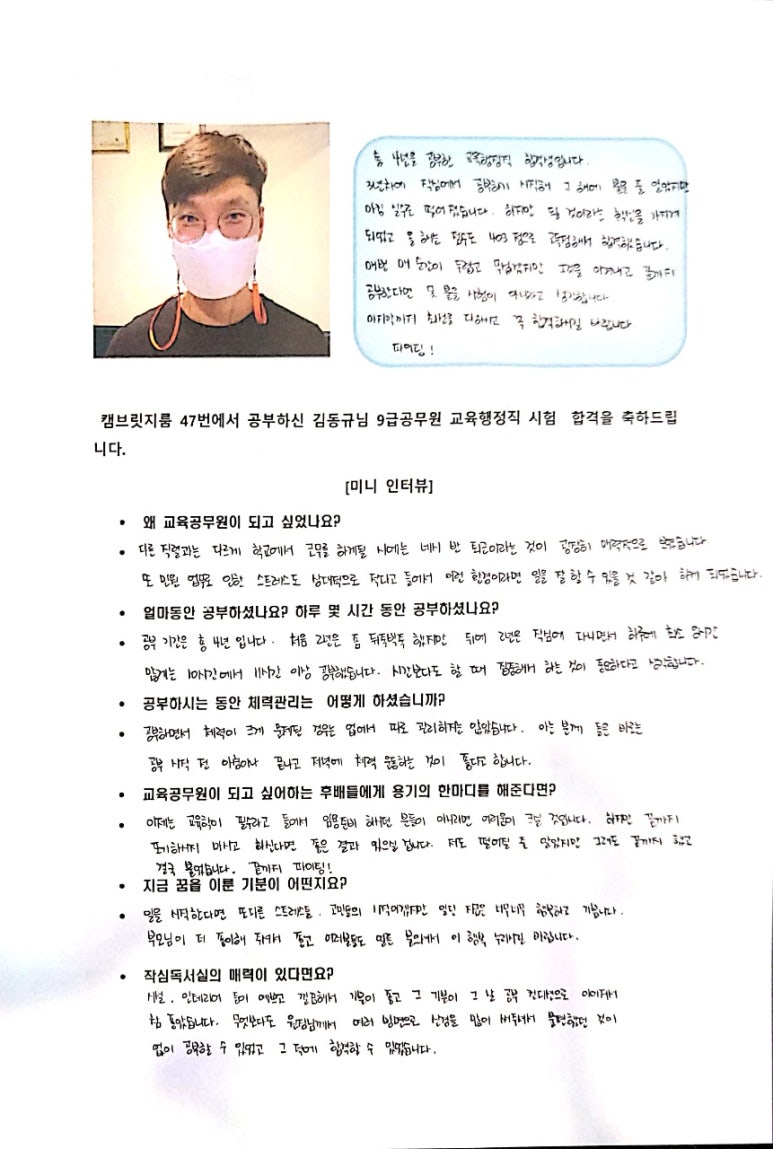 총 4년을 공부한 교육행정직 합격생입니다.
작심에서 공부하기 시작해 그 해에 붙을 줄 알았지만
아깝게 떨어졌습니다. 하지만 될 것이라는 확신을 가지게
되었고 올해는 점수도 403점으로 고득점해서 합격하였습니다.
매번 매 순간이 두렵고 무섭겠지만 그것을 이겨내고 끝까지
공부한다면 못 붙을 시험이 아니라고 생각합니다
마지막까지 최선을 다하시고 꼭 합격하시길 바랍니다
파이팅!
캠브릿지룸 47번에서 공부하신 김동규님 9급공무원 교육행정직 시험 합격을 축하드립
니다.
[미니 인터뷰]
• 왜 교육공무원이 되고 싶었나요?
• 다른 직렬과는 다르게 학교에서 근무를 하게될 시에는 네시 반 퇴근이라는 것이 굉장히 매력적으로
또 민원 업무로 인한 스트레스도 상대적으로 적다고 들어서 이런 환경이라면 일을 잘 할 수 있을 것 같아 하게 되었습니다.
• 얼마동안 공부하셨나요? 하루 몇 시간 동안 공부하셨나요?
• 공부 기간은 총 4년 입니다. 처음 2년은 좀 뒤죽박죽 했지만 뒤에 2년은 작심에 다니면서 하루에 최소 8시간
많게는 10시간에서 11시간 이상 공부했습니다. 시간보다도 할 때 집중해서 하는 것이 중요하다고 생각합니다.
• 공부하시는 동안 체력관리는 어떻게 하셨습니까?
• 공부하면서 체력이 크게 문제된 경우는 없어서 따로 관리하지는 않았습니다. 아는 분께 들은 바로는
공부 시작 전 아침이나 끝나고 저녁에 체력 운동하는 것이 좋다고 합니다.
• 교육공무원이 되고 싶어하는 후배들에게 용기의 한마디를 해준다면?
• 이제는 교육학이 필수라고 들어서 임용준비 하셨던 분들이 아니라면 어려움이 크실 것입니다. 하지만 끝까지
포기하시지 마시고 하신다면 좋은 결과 있으실 겁니다. 저도 떨어질 줄 알았지만 그래도 끝까지 했고
결국 붙었습니다. 끝까지 파이팅!
• 지금 꿈을 이룬 기분이 어떤지요?
• 일을 시작한다면 또다른 스트레스들, 고민들이 시작되겠지만 일단 지금은 너무너무 행복하고 기쁩니다.
부모님이 더 좋아해 주셔서 좋고 여러분들도 합격 이 행복 누리시길 바랍니다.
• 작심독서실의 매력이 있다면요?
시설, 인테리어 등이 예쁘고 깔끔해서 기분이 좋고 그 기분이 그 날 공부 컨디션으로 이어져서
참 좋았습니다. 무엇보다도 원장님께서 여러 방면으로 신경을 많이 써주셔서 불편했던 것이
없이 공부할 수 있었고 그 덕에 합격할 수 있었습니다.